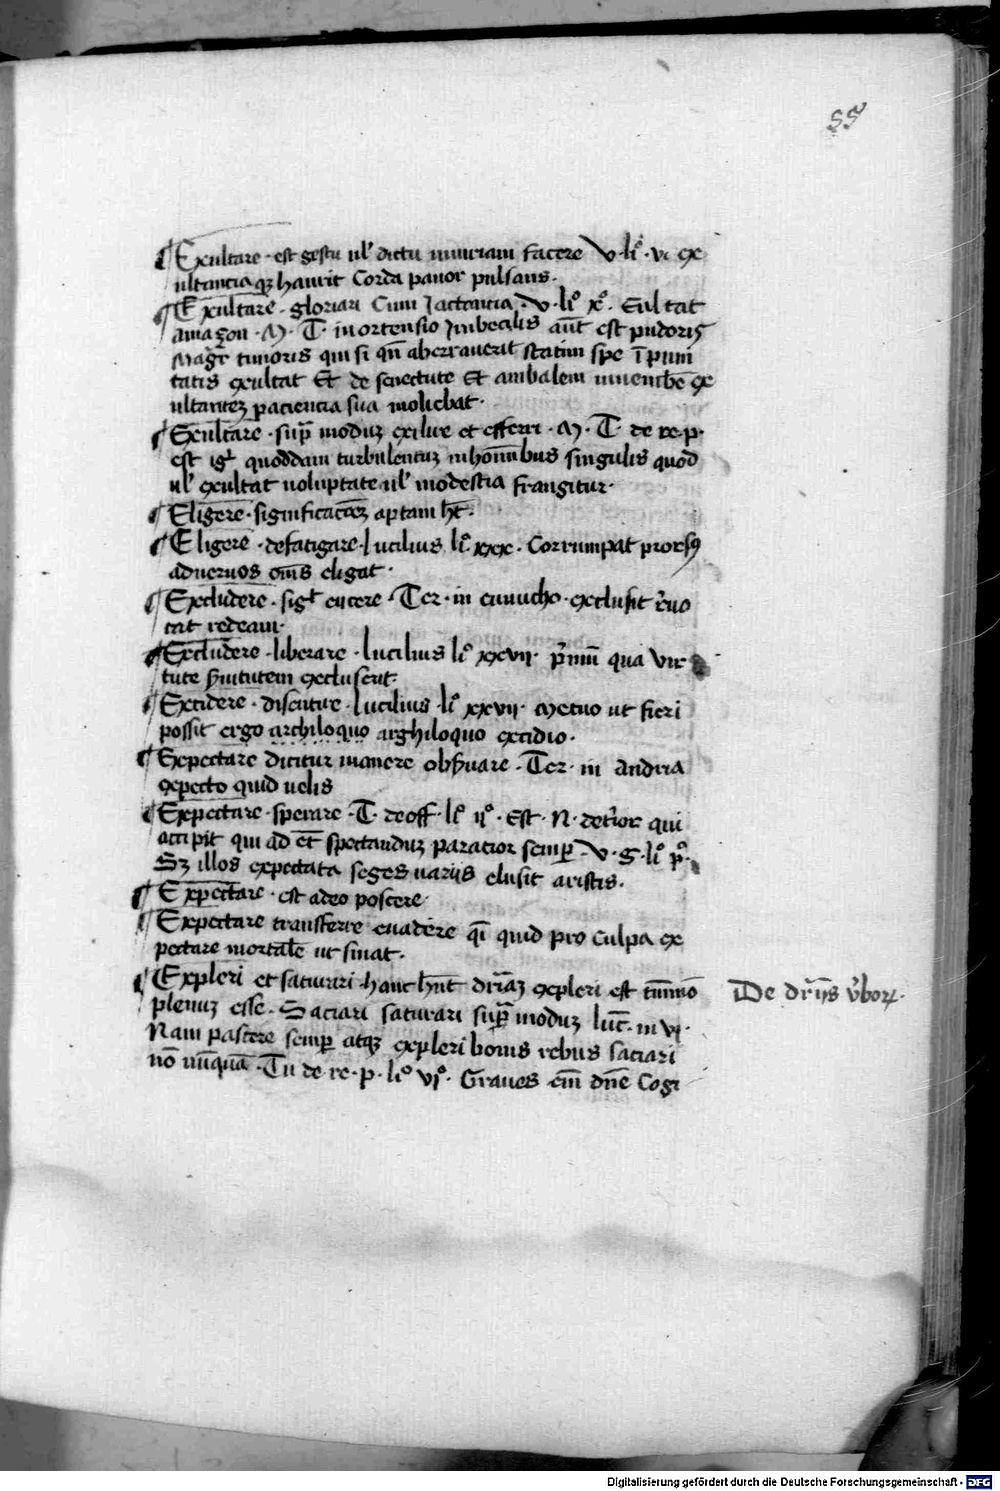 55
Exultare · est gestu ul' dictu iniuriam facere V · li° · vi ex
ultantiaqꝫ haurit Corda pauor pulsans ·
Exultare · gloriari Cum Jactantia · V · li° x° · Exultat
amazon · M · T · in ortensio Imbecilis aut̄ est pudoris
magr̄ timoris qui si qn̄ aberrauerit statim spe īpuni
tatis exultat Et de senectute Et anibalem iuuenibꝰ ex
ultantē paciencia sua moliebat ·
Exultare · supͣ moduꝫ exilire et efferri · M · T · de re · p ·
est igͭ quoddam turbulentuꝫ in hominibus singulis quod
ul' exultat uoluptate ul' modestia frangitur ·
Eligere · significatōeꝫ aptam hꝫ ·
Eligere · defatigare · lucilius li° xxx · Corrumpat prorsꝰ
ad neruos om̄s eligat ·
Excludere · sigͭ eicere · Ter · in eunucho · exclusit reuo
cat redeam ·
Excludere · liberare · lucilius li° xxvii · p̄mū qua vir
tute s̓uitutem excluserit ·
Excidere · discutire · lucilius · li° xxvii · Metuo ut fieri
possit ergo archiloquo arghiloquo excidio ·
Expectare dicitur manere obs̓uare · Ter · in Andria
expecto quid uelis
Expectare · sperare · T · de off · li° ii° · Est · N · det̓ior qui
accipit qui ad et̄ spectanduꝫ paratior semꝑ · V · g · li° p° ·
Sꝫ illos expectata seges uariis elusit aristis ·
Expectare · est adeo poscere ·
Expectare transferre euadere qͥ quid pro culpa ex
pectare mortale ut sinat ·
Expleri et saturari · hanc hn̄t dr̄iaꝫ expleri est tm̄mō
De dr̄iis v̓borꝝ ·
plenuꝫ esse · Saciari saturari supͣ moduꝫ luc̄ · in vi ·
Nam pascere semꝑ atqꝫ expleri bonis rebus saciari
nō nūquā · Tu de · re · p · li° vi° · Graues · em̄ dn̄e Cogi
Digitalisierung gefördert durch die Deutsche Forschungsgemeinschaft - DFG